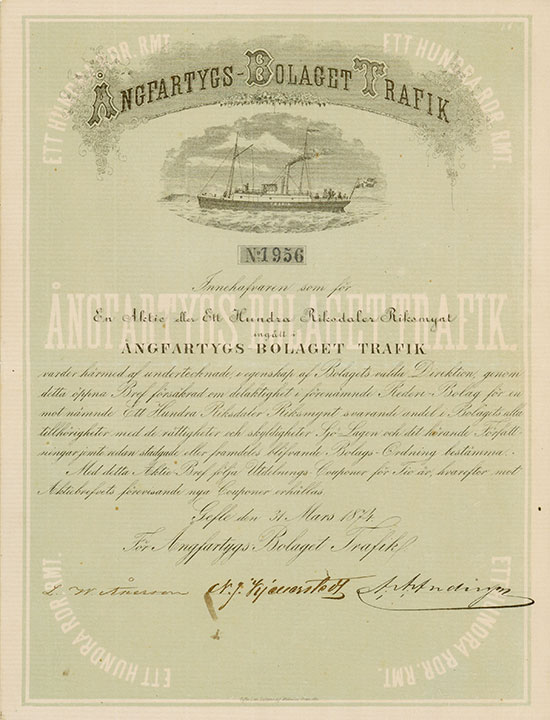 ETT HUNDRA RDR. RMT.
ETT HUNDRA RDR. RMT.
ÅNGFARTYGS-BOLAGET TRAFIK
No 1956
Innehafvaren som för
ÅNGFARTYGS-BOLAGET TRAFIK.
En Aktie eller Ett Hundra Riksdaler Riksmynt
ingått i
ÅNGFARTYGS-BOLAGET TRAFIK
varder härmed af undertecknade, i egenskap af Bolagets valda Direktion, genom
detta öppna Bref försäkrad om delaktighet i förenämnde Rederi-Bolag för en
mot nämnde Ett Hundra Riksdaler Riksmynt svarande andel i Bolagets alla
tillhörigheter med de rättigheter och skyldigheter Sjö Lagen och dit hörande Författ-
ningar jemte redan stadgade eller framdeles blifvande Bolags-Ordning bestämma.
Med detta Aktie-Bref följa Utdelnings Couponer för Tio år, hvarefter mot
Aktiebrefvets förevisande nya Couponer erhållas.
Gefle den 31 Mars 1874
För Ångfartygs-Bolaget Trafik
N. J.
ETT HUNDRA RDR. RMT.
ETT HUNDRA RDR. RMT.